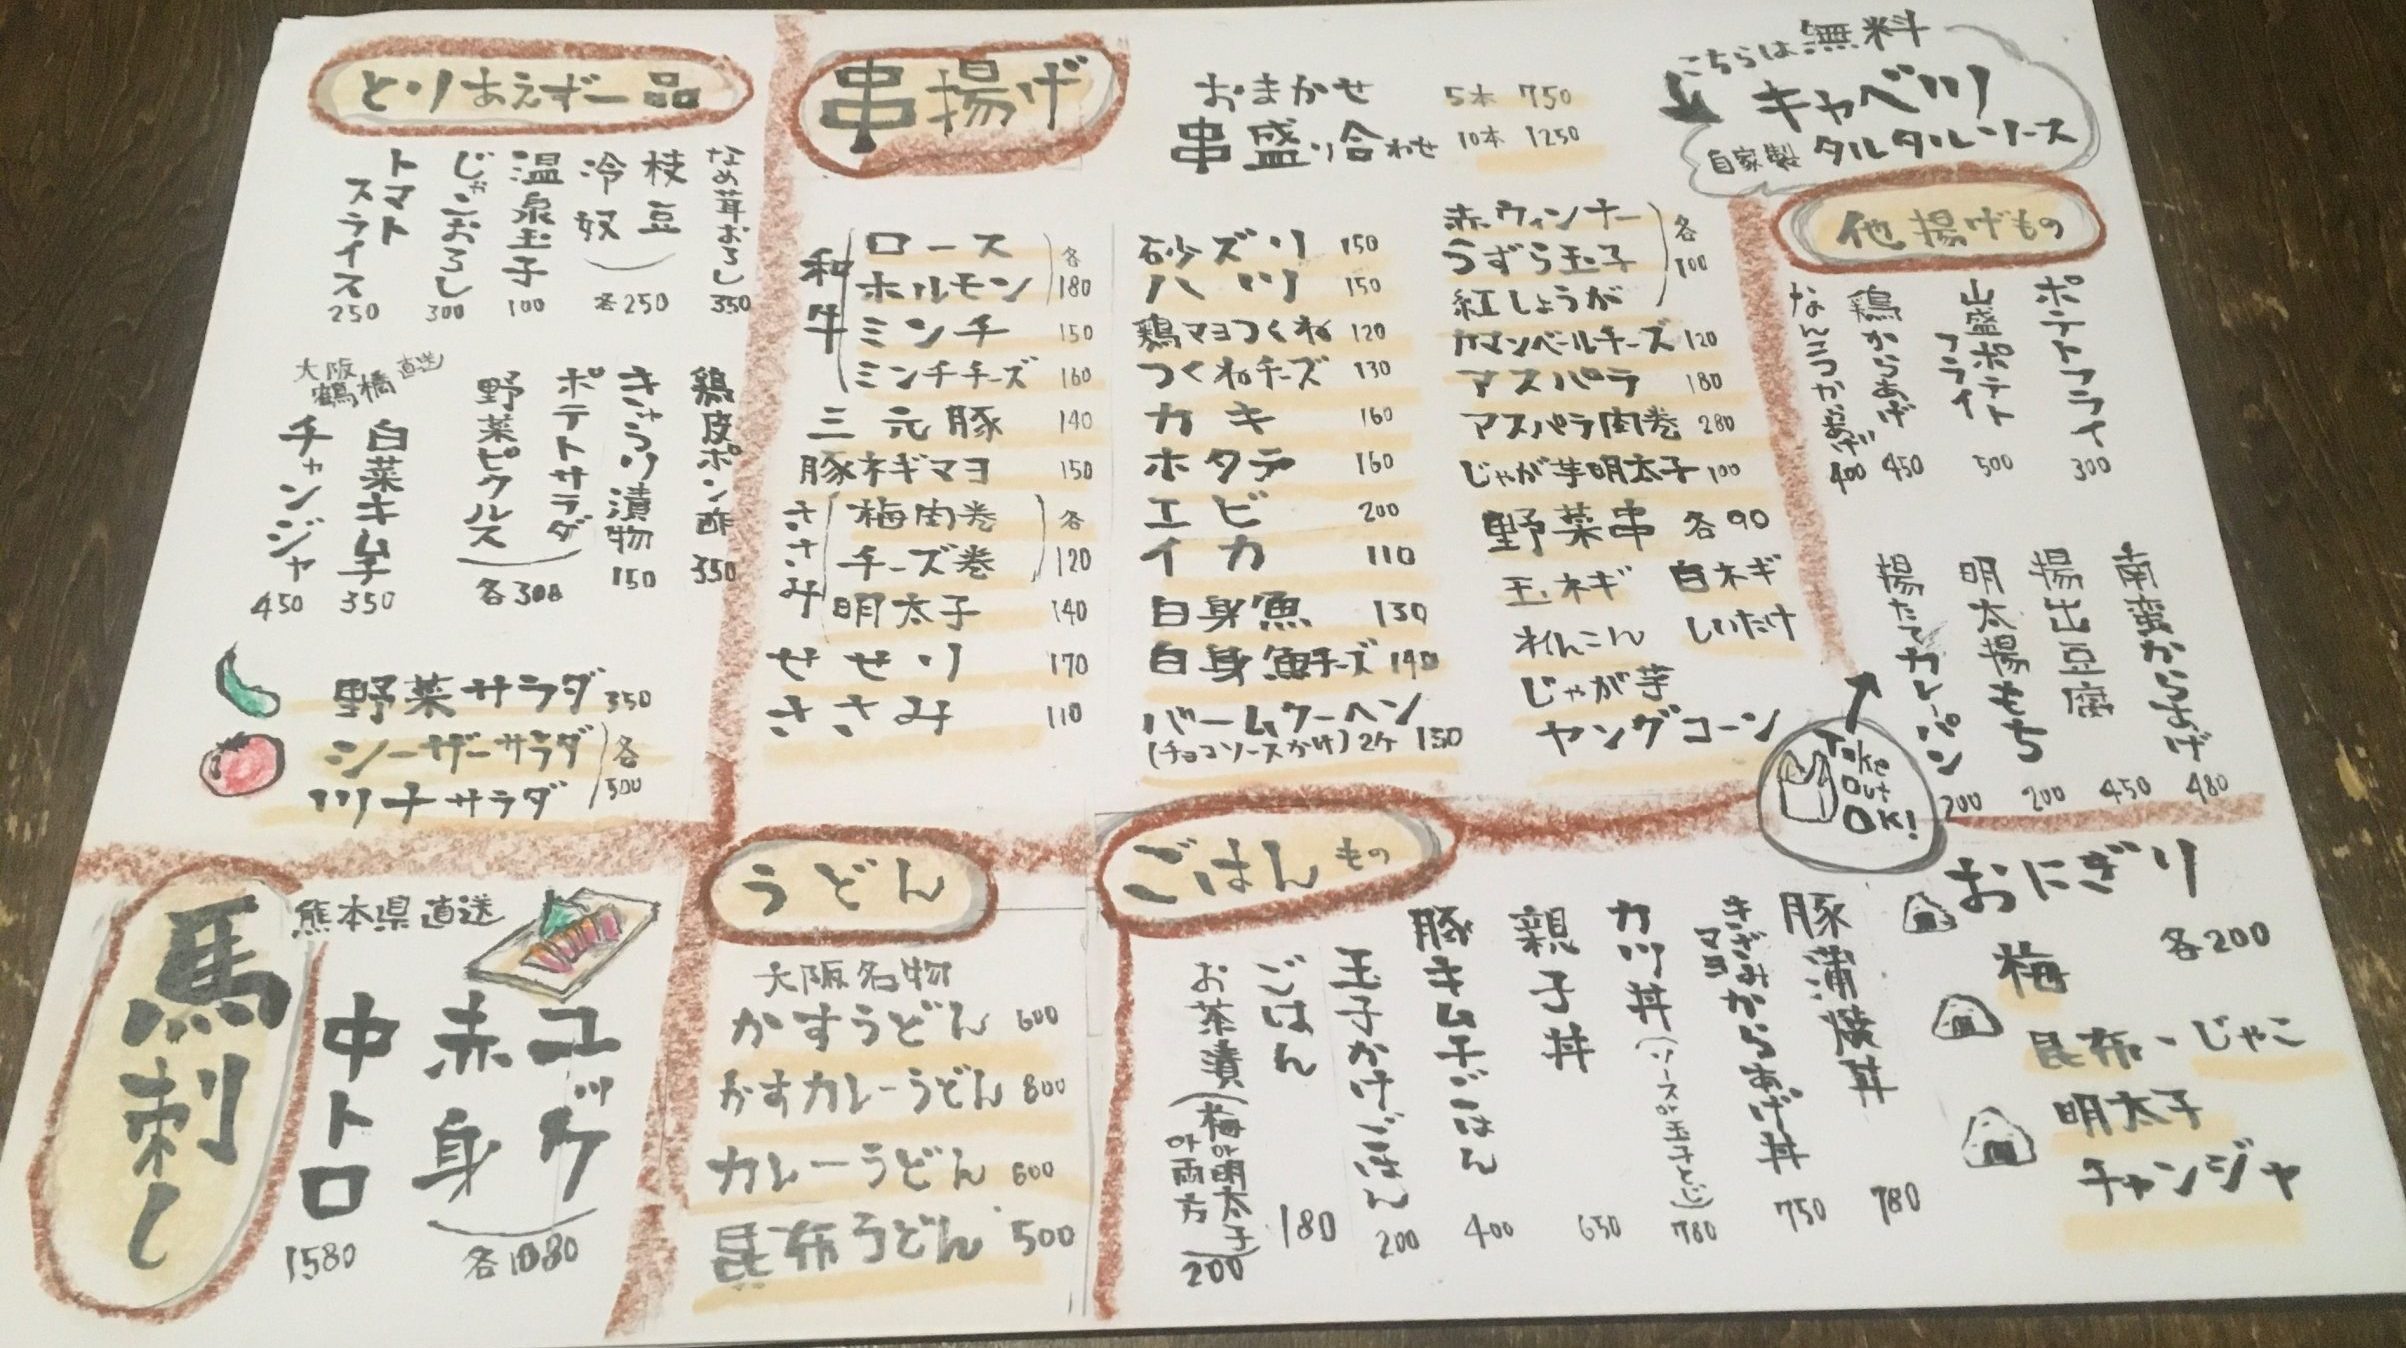 とりあえず一品
なめ茸おろし 350
枝豆
冷奴
各250
温泉玉子 100
じゃこおろし 300
トマトスライス 250
鶏皮ポン酢 350
きゅうり漬物 150
ポテトサラダ
野菜ピクルス
各300
大阪鶴橋直送
白菜キムチ 350
チャンジャ 450
野菜サラダ 350
シーザーサラダ
ツナサラダ
各500
串揚げ
おまかせ
串盛り合わせ
5本 750
10本 1250
和牛
ロース
ホルモン
各180
ミンチ 150
ミンチチーズ 160
三元豚 140
豚ネギマヨ 150
ささみ
梅肉巻
チーズ巻
各120
明太子 140
せせり 170
ささみ 110
砂ズリ 150
ハツ 150
鶏マヨつくね 120
つくねチーズ 130
カキ 160
ホタテ 160
エビ 200
イカ 110
白身魚 130
白身魚チーズ 140
バームクーヘン
(チョコソースがけ)2ケ 150
赤ウィンナー
うずら玉子
紅しょうが
各100
カマンベールチーズ 120
アスパラ 180
アスパラ肉巻 280
じゃが芋明太子 100
野菜串 各90
玉ネギ 白ネギ
れんこん しいたけ
じゃが芋
ヤングコーン
こちらは無料
キャベツ
自家製 タルタルソース
他揚げもの
ポテトフライ 300
山盛ポテトフライ 500
鶏からあげ 450
なんこつからあげ 400
南蛮からあげ 480
揚出豆腐 450
明太揚もち 200
揚たてカレーパン 200
Take Out OK!
馬刺し
熊本県直送
ユッケ
赤身
各1080
中トロ 1580
うどん
大阪名物
かすうどん 600
かすカレーうどん 800
カレーうどん 600
昆布うどん 500
ごはんもの
豚蒲焼丼 780
ネギマヨからあげ丼 750
カツ丼(ソースor玉子とじ) 780
親子丼 650
豚キムチごはん 400
玉子かけごはん 200
ごはん 180
お茶漬(梅or明太子or両方) 200
おにぎり
各200
梅
昆布・じゃこ
明太子
チャンジャ